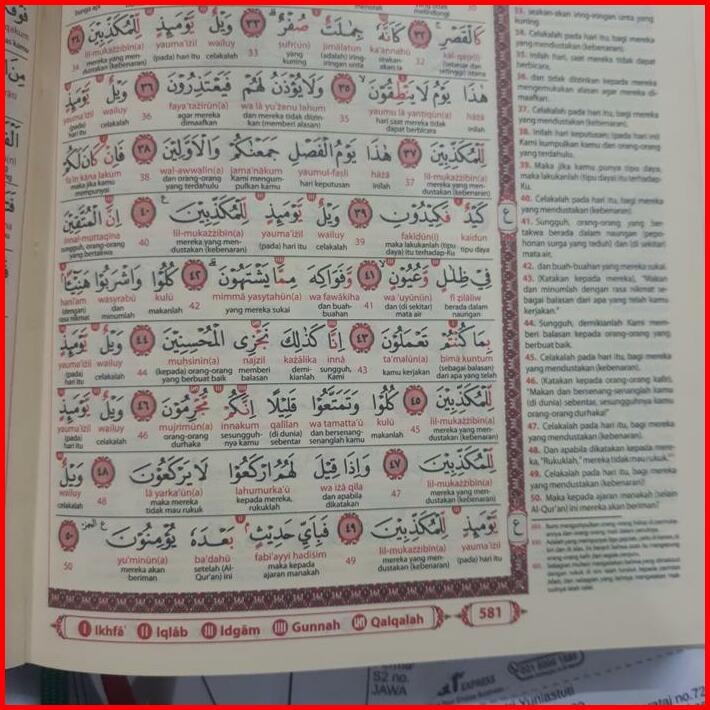 كَالْقَصْرِ ٣٢ كَأَنَّهُ جِمَٰلَتٌ صُفْرٌ ٣٣ وَيْلٌ يَوْمَئِذٍ لِّلْمُكَذِّبِينَ ٣٤
kal-qaṣr(i) 32 ka'annahū jimālatun ṣufr(un) 33 wailuy yauma'iżil lil-mukażżibīn(a) 34
هَٰذَا يَوْمُ لَا يَنطِقُونَ ٣٥ وَلَا يُؤْذَنُ لَهُمْ فَيَعْتَذِرُونَ ٣٦ وَيْلٌ يَوْمَئِذٍ
hāżā yaumu lā yanṭiqūn(a) 35 wa lā yu'żanu lahum faya'tażirūn(a) 36 wailuy yauma'iżil
inilah hari saat mereka tidak dapat berbicara dan mereka tidak diizinkan (memberi alasan) agar mereka dimaafkan celakalah (pada) hari itu
لِّلْمُكَذِّبِينَ ٣٧ هَٰذَا يَوْمُ الْفَصْلِ جَمَعْنَٰكُمْ وَالْأَوَّلِينَ ٣٨ فَإِن كَانَ لَكُمْ
lil-mukażżibīn(a) 37 hāżā yaumul-faṣli jama'nākum wal-awwalīn(a) 38 fa'in kāna lakum
mereka yang mendustakan (kebenaran) inilah hari keputusan Kami mengumpulkan kamu dan orang-orang yang terdahulu maka jika kamu mempunyai
كَيْدٌ فَكِيدُونِ ٣٩ وَيْلٌ يَوْمَئِذٍ لِّلْمُكَذِّبِينَ ٤٠ إِنَّ الْمُتَّقِينَ
kaidun fakīdūn(i) 39 wailuy yauma'iżil lil-mukażżibīn(a) 40 innal-muttaqīna
tipu daya maka lakukanlah (tipu daya) itu terhadap-Ku celakalah (pada) hari itu mereka yang mendustakan (kebenaran) sungguh, orang-orang yang bertakwa
فِي ظِلَٰلٍ وَعُيُونٍ ٤١ وَفَوَاكِهَ مِمَّا يَشْتَهُونَ ٤٢ كُلُوا وَاشْرَبُوا هَنِيئًا
fī ẓilāliw wa 'uyūn(in) 41 wa fawākiha mimmā yasytahūn(a) 42 kulū wasyrabū hanī'am
berada dalam naungan dan (di sekitar) mata air dan buah-buahan yang mereka sukai makanlah dan minumlah (dengan) rasa nikmat
بِمَا كُنتُمْ تَعْمَلُونَ ٤٣ إِنَّا كَذَٰلِكَ نَجْزِي الْمُحْسِنِينَ ٤٤ وَيْلٌ يَوْمَئِذٍ
bimā kuntum ta'malūn(a) 43 innā każālika najzil muḥsinīn(a) 44 wailuy yauma'iżil
(sebagai balasan) dari apa yang telah kamu kerjakan sungguh, Kami demikianlah memberi balasan (kepada) orang-orang yang berbuat baik celakalah (pada) hari itu
لِّلْمُكَذِّبِينَ ٤٥ كُلُوا وَتَمَتَّعُوا قَلِيلًا إِنَّكُم مُّجْرِمُونَ ٤٦ وَيْلٌ يَوْمَئِذٍ
lil-mukażżibīn(a) 45 kulū wa tamatta'ū qalīlan innakum mujrimūn(a) 46 wailuy yauma'iżil
mereka yang mendustakan (kebenaran) makanlah dan bersenang-senanglah kamu (di dunia) sebentar sesungguhnya kamu orang-orang durhaka celakalah (pada) hari itu
لِّلْمُكَذِّبِينَ ٤٧ وَإِذَا قِيلَ لَهُمُ ارْكَعُوا لَا يَرْكَعُونَ ٤٨ وَيْلٌ
lil-mukażżibīn(a) 47 wa iżā qīla lahumurka'ū lā yarka'ūn(a) 48 wailuy
mereka yang mendustakan (kebenaran) dan apabila dikatakan kepada mereka, rukuklah maka mereka tidak mau rukuk celakalah
يَوْمَئِذٍ لِّلْمُكَذِّبِينَ ٤٩ فَبِأَيِّ حَدِيثٍ بَعْدَهُ يُؤْمِنُونَ ٥٠
yauma'iżil lil-mukażżibīn(a) 49 fabi'ayyi ḥadīṡim ba'dahū yu'minūn(a) 50
(pada) hari itu mereka yang mendustakan (kebenaran) maka kepada ajaran manakah setelah (Al-Qur'an) ini mereka akan beriman
I Ikhfā' II Iqlāb III Idgām IIII Gunnah Qalqalah
581
33. seakan-akan iring-iringan unta yang
kuning.
34. Celakalah pada hari itu, bagi mereka
yang mendustakan (kebenaran).
35. Inilah hari, saat mereka tidak dapat
berbicara,
36. dan tidak diizinkan kepada mereka
mengemukakan alasan agar mereka di-
maafkan.
37. Celakalah pada hari itu, bagi mereka
yang mendustakan (kebenaran).
38. Inilah hari keputusan; (pada hari ini)
Kami kumpulkan kamu dan orang-orang
yang terdahulu.
39. Maka jika kamu punya tipu daya,
maka lakukanlah (tipu daya) itu terhadap-
Ku.
40. Celakalah pada hari itu, bagi mereka
yang mendustakan (kebenaran).
41. Sungguh, orang-orang yang ber-
takwa berada dalam naungan (pepo-
honan surga yang teduh) dan (di sekitar)
mata air,
42. dan buah-buahan yang mereka sukai.
43. (Katakan kepada mereka), "Makan
dan minumlah dengan rasa nikmat se-
bagai balasan dari apa yang telah kamu
kerjakan."
44. Sungguh, demikianlah Kami mem-
beri balasan kepada orang-orang yang
berbuat baik.
45. Celakalah pada hari itu, bagi mereka
yang mendustakan (kebenaran).
46. (Katakan kepada orang-orang kafir),
"Makan dan bersenang-senanglah kamu
(di dunia) sebentar, sesungguhnya kamu
orang-orang durhaka!"
47. Celakalah pada hari itu, bagi mereka
yang mendustakan (kebenaran).
48. Dan apabila dikatakan kepada mere-
ka, "Rukuklah," mereka tidak mau rukuk.
49. Celakalah pada hari itu, bagi mereka
yang mendustakan (kebenaran)!
50. Maka kepada ajaran manakah (selain
Al-Qur'an) ini mereka akan beriman?
EXPRESS
S2 no.
JAWA
Yuniastuti
no.72